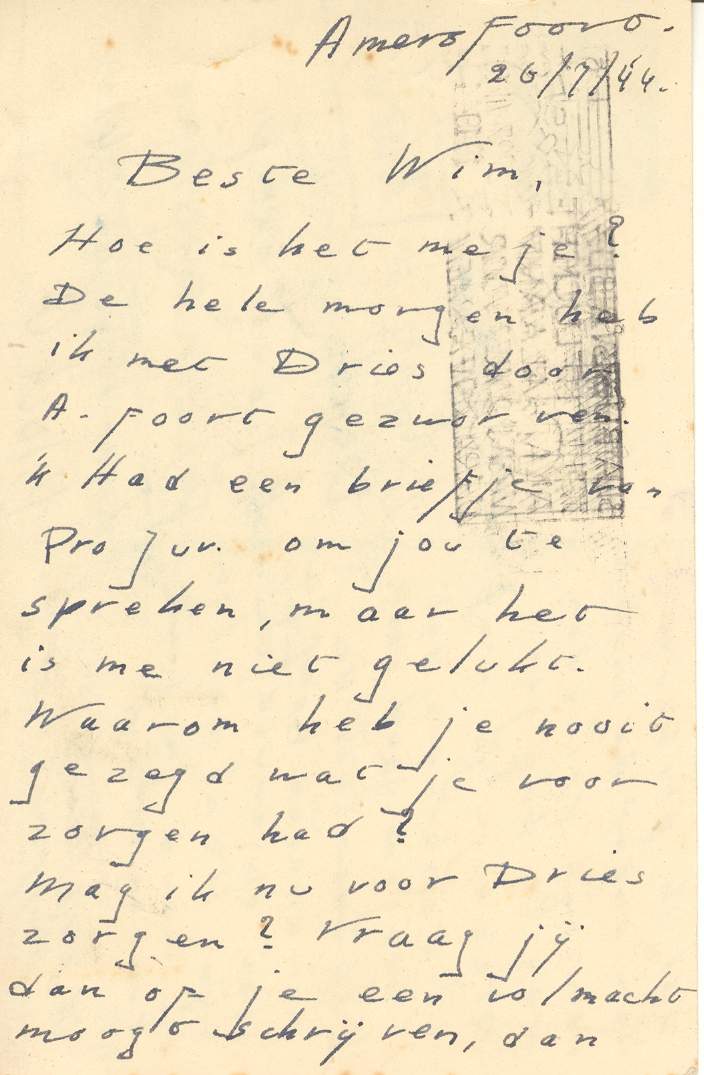 Amersfoort.
26/7/'44.
Beste Wim,
Hoe is het me je?
De hele morgen heb
ik met Dries door
A-foort gezworven.
'k Had een briefje van
Pro Jur. om jou te
spreken, maar het
is me niet gelukt.
Waarom heb je nooit
gezegd wat je voor
zorgen had?
Mag ik nu voor Dries
zorgen? Vraag jij
dan of je een volmacht
moogt schrijven, dan